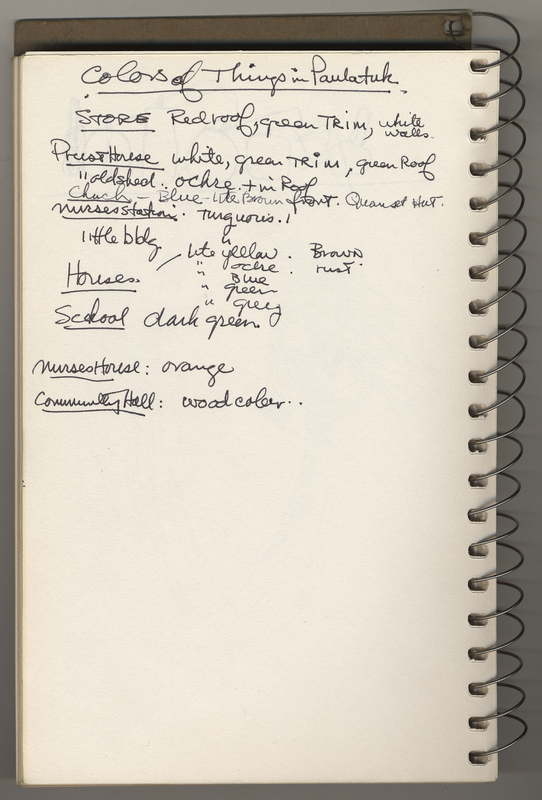 Colors of Things in Paulatuk.
STORE Red roof, green TRIM, white walls.
Priest House white, green TRIM, green Roof
" old shed.. ochre. + in Roof
Church - Blue - Lite Brown front. Quanset Hut.
Nurses station. Turquois.
little bldg. "
Houses. lite yellow. Brown.
" ochre. rust.
" Blue
" green
" grey
School dark green.
Nurses House: orange
Community Hall: wood color..